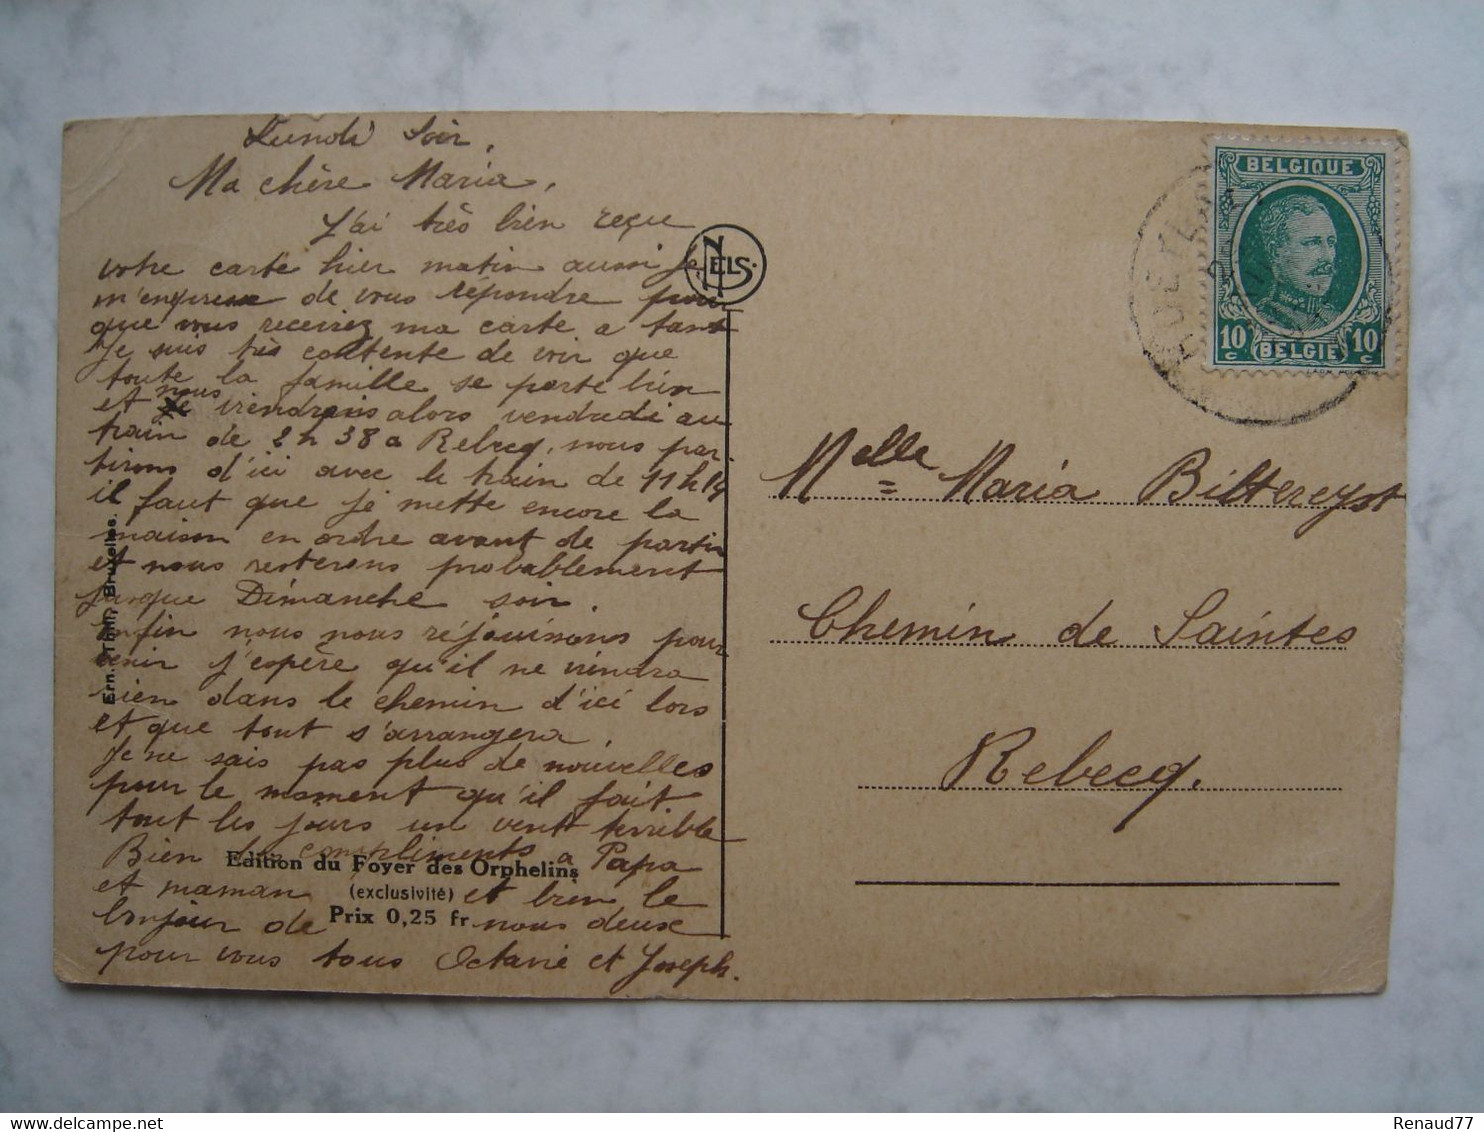 Lundi Soir,
Ma chère Maria,
J'ai très bien reçu
votre carte hier matin aussi je
m'empresse de vous répondre pour
que vous receviez ma carte a tant
Je suis très contente de voir que
toute la famille se porte bien
et nous viendrons alors vendredi au
train de 2 h 38 a Rebecq, nous par-
tirons d'ici avec le train de 11 h 14
il faut que je mette encore la
maison en ordre avant de partir
et nous resterons probablement
jusque Dimanche soir.
enfin nous nous réjouissons pour
venir j'espère qu'il ne viendra
rien dans le chemin d'ici lors
et que tout s'arrangera.
Je ne sais pas plus de nouvelles
pour le moment qu'il fait
tout les jours un vent terrible
Bien des compliments a Papa
et maman et bien le
bonjour de nous deux
pour vous tous Octavie et Joseph.
Edition du Foyer des Orphelins
(exclusivité)
Prix 0,25 fr
Ern. Thill, Bruxelles.
NELS.
BELGIQUE
10 c BELGIE 10 c
Melle Maria Biltereyst
Chemin de Saintes
Rebecq.
Renaud77
delcampe.net